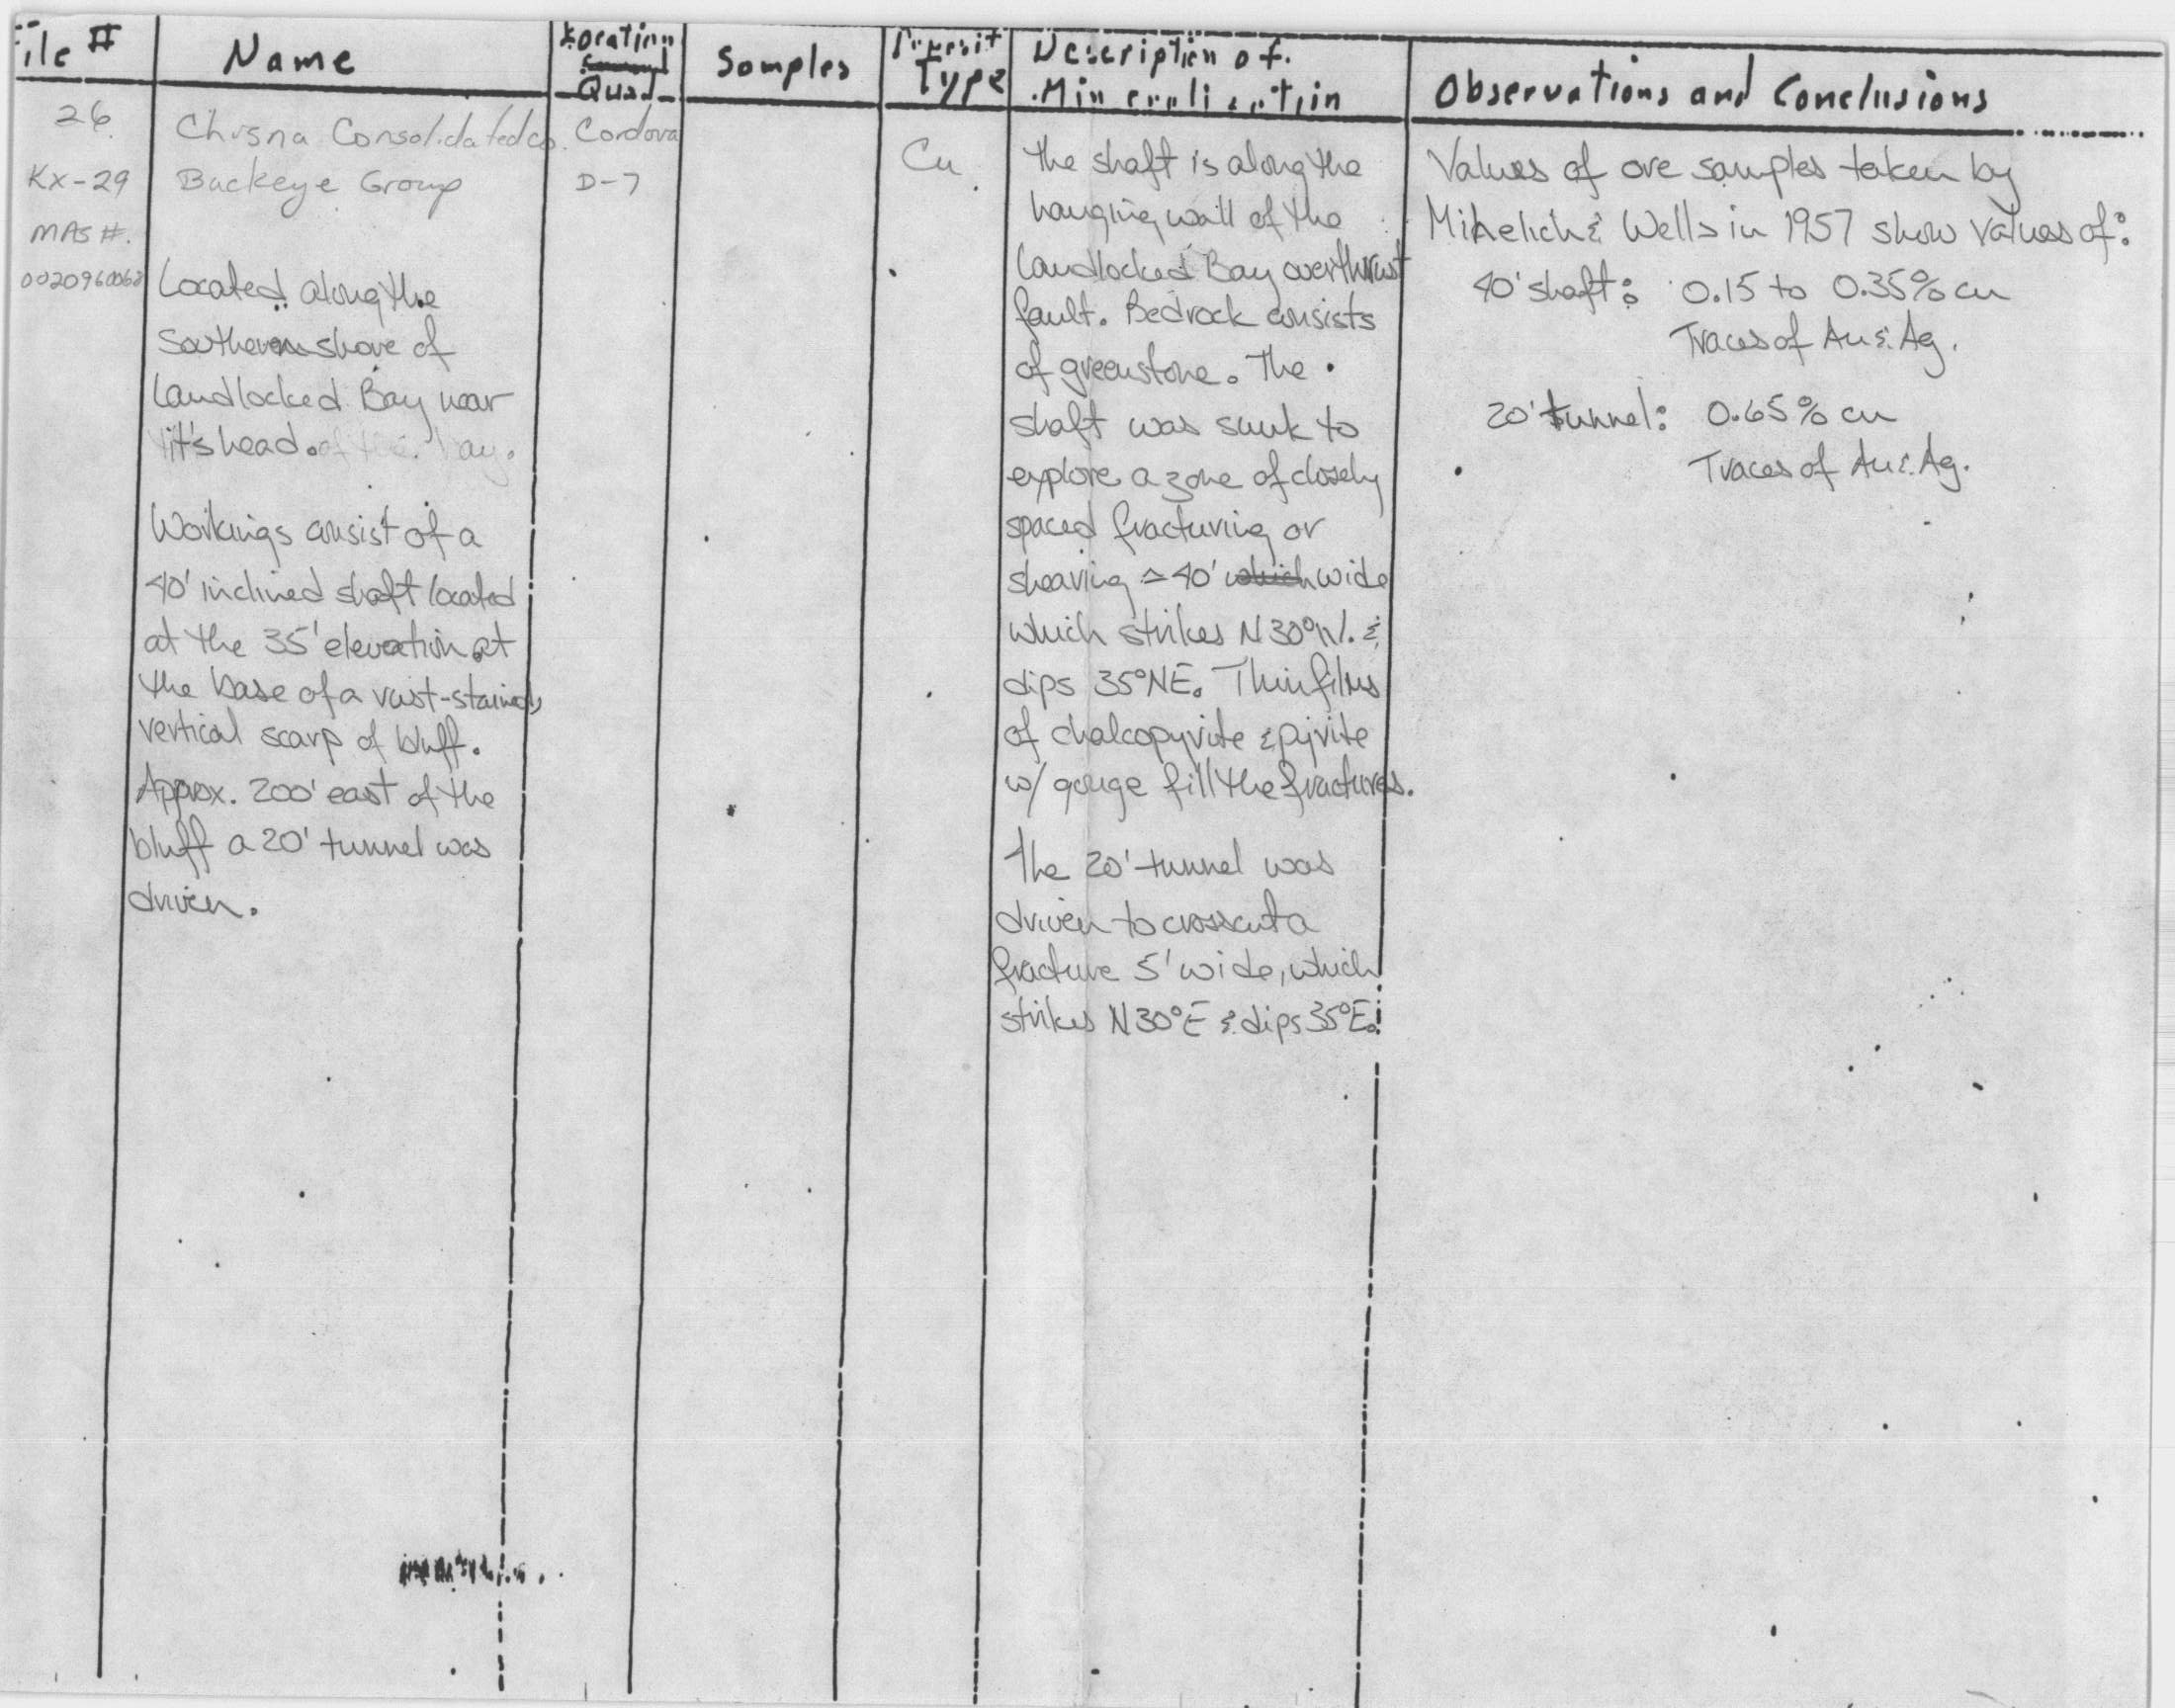 File #
Name
Location
Quad
Samples
Deposit
Type
Description of
Mineralization
Observations and Conclusions
26
KX-29
MAS #.
Chisna Consolidated Co.
Buckeye Group
Located along the
Southern shore of
Landlocked Bay near
it's head.
Workings consist of a
40' inclined shaft located
at the 35' elevation at
the base of a rust-stained,
vertical scarp of bluff.
Approx. 200' east of the
bluff a 20' tunnel was
driven.
Cordova
D-7
Cu
The shaft is along the
hanging wall of the
Landlocked Bay overthrust
fault. Bedrock consists
of greenstone. The
shaft was sunk to
explore a zone of closely
spaced fracturing or
shearing ≃ 40' which wide
which strikes N30°W. &
dips 35°NE. Thin films
of chalcopyrite & pyrite
w/ gouge fill the fractures.
The 20' tunnel was
driven to crosscut a
fracture 5' wide, which
strikes N30°E & dips 35°E.
Values of ore samples taken by
Mihelich & Wells in 1957 show values of:
40' shaft: 0.15 to 0.35% cu
Traces of Au & Ag.
20' tunnel: 0.65% cu
Traces of Au & Ag.